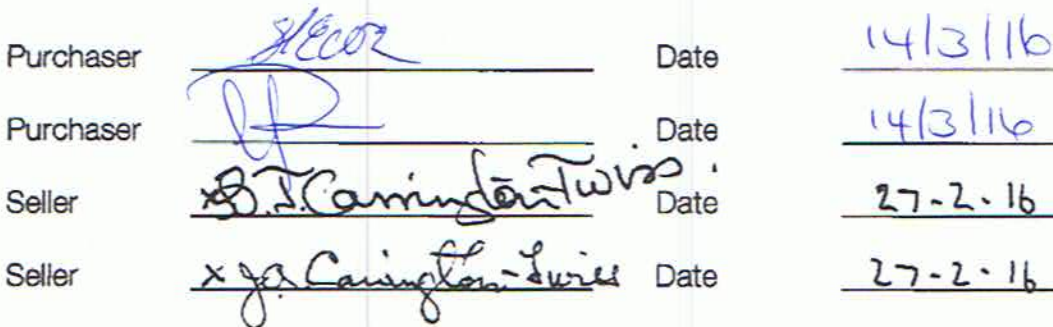 Purchaser Date 14/3/16
Purchaser Date 14/3/16
Seller x B.J. Carrington-Twiss. Date 27-2-16
Seller x J.A. Carrington-Twiss Date 27-2-16